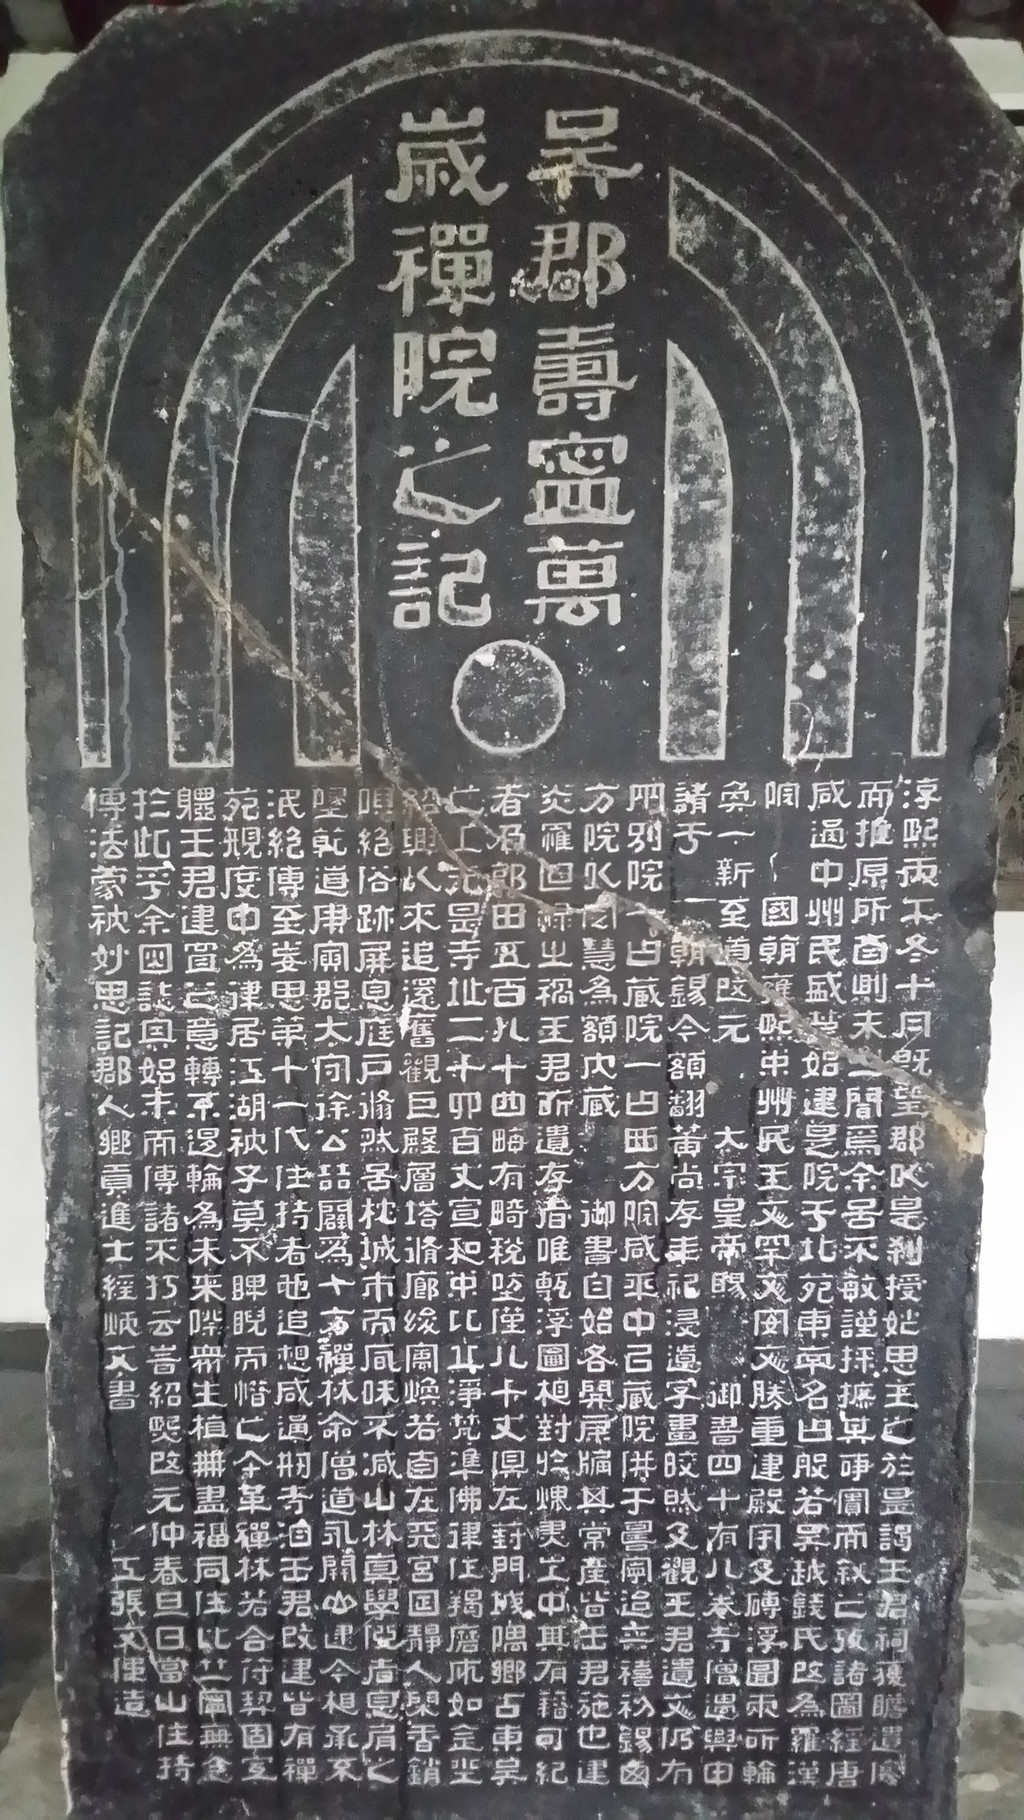 吴郡壽寧萬
歲禪院之記
淳熙丙不冬十月既望郡以是剎授妙思王之於是謁王君祠獲瞻遺像
而推原所自則未之聞焉余固不敏謹採摭其事實而敘之攷諸圖經唐
咸通中州民盛楚始建是院于北苑東南名曰般若吴越錢氏改為羅漢
國朝雍熙中州民王文罕文安文勝重建殿宇及磚浮圖兩所輪
奐一新至道改元 大宗皇帝賜 御書四十有八卷寺僧遇興申
請于 朝錫今額翻黃尚存年祀浸遠字畫皎然及觀王君遺文仍有
別院一曰藏院一曰西方院咸平中己藏院併于壽寧追 禧初錫西
方院以圓慧為額內藏 御書自始各開户牖其常產皆王君施也建
炎羅回祿之禍王君所遺存者唯甎浮圖相對於煨燼之中其有籍可紀
者郭田五百八十四畮有畸稅 僅八十丈俱在封門城隅鄉曰東吴
是寺址二千卯百丈宣和中比丘淨梵準佛律住羯磨 如 坐
紹興以來追還舊觀巨殿層塔脩廊綾閣煥若 在兜宮固靜人閑香銷
唄絕俗跡屏息庭户翛然居枕城市而風味不減山林真學佛者息肩之
墜乾道庚寅郡太守徐公喆闢為十方禪林命僧道永開山建令相承不
泯絕傳至妙思第十一代住持者也追想咸通 王君改建皆有禪
苑規度中為律居江湖衲子莫不睥睨而惜之今革禪林若合符契固宜
軆王君建置之意轉不退輪為未來際眾生植無盡福同住比丘
於此乎余因誌與始末而傳諸不朽云峕紹熙改元仲春旦日當山住持
傳法蒙衲妙思記郡人鄉貢進士經 書 工張文 造